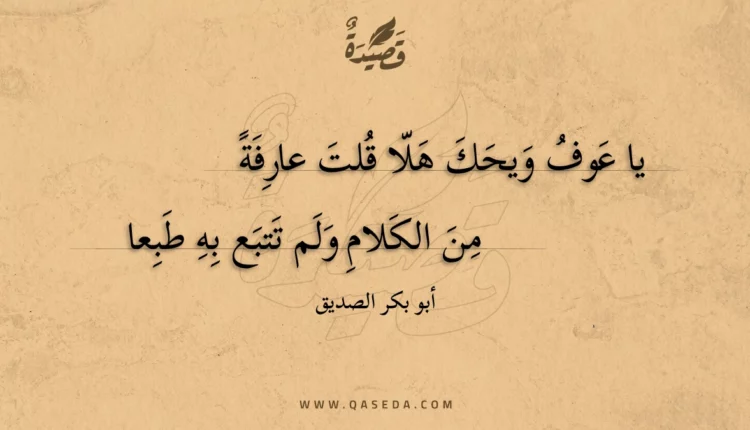 قَصِيْدَةٌ
يا عَوفُ وَيحَكَ هَلّا قُلتَ عارِفَةً
مِنَ الكَلامِ وَلَم تَتبَع بِهِ طَبِعا
أبو بكر الصديق
WWW.QASEDA.COM